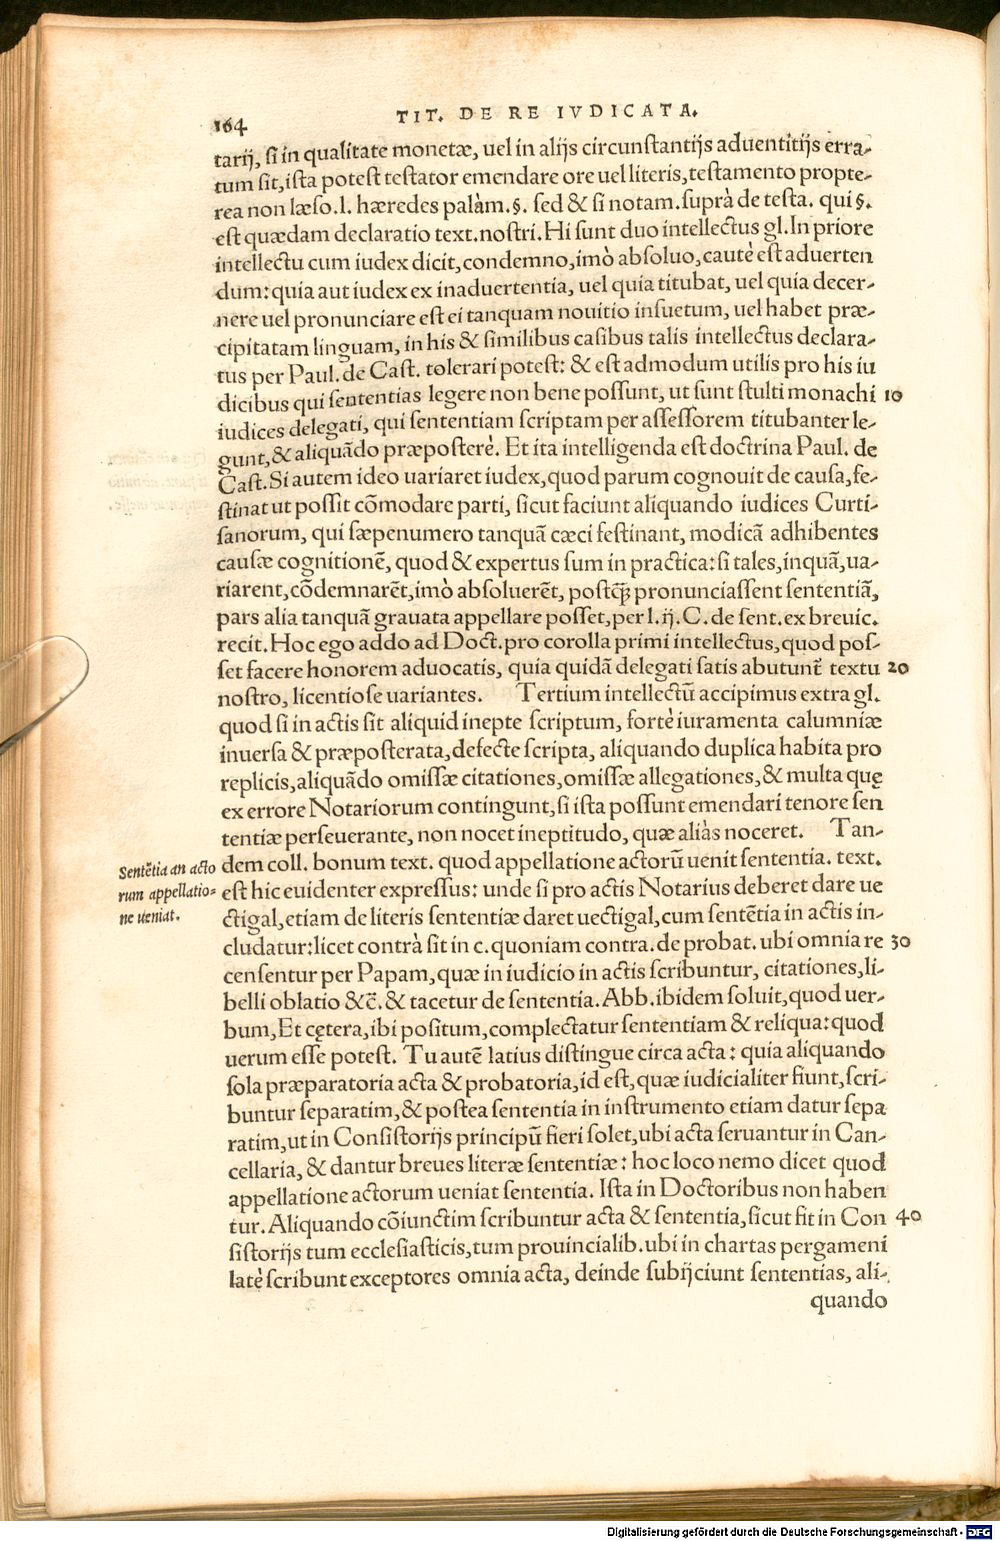 164
TIT. DE RE IVDICATA.
tarij, si in qualitate monetæ, uel in alijs circunstantijs aduentitijs erra-
tum sit, ista potest testator emendare ore uel literis, testamento propte-
rea non læso. l. hæredes palàm. §. sed & si notam. suprà de testa. qui §.
est quædam declaratio text. nostri. Hi sunt duo intellectus gl. In priore
intellectu cum iudex dicit, condemno, imò absoluo, cautè est aduerten
dum: quia aut iudex ex inaduertentia, uel quia titubat, uel quia decer-
nere uel pronunciare est ei tanquam nouitio insuetum, uel habet præ-
cipitatam linguam, in his & similibus casibus talis intellectus declara-
tus per Paul. de Cast. tolerari potest: & est admodum utilis pro his iu
dicibus qui sententias legere non bene possunt, ut sunt stulti monachi 10
iudices delegati, qui sententiam scriptam per assessorem titubanter le-
gunt, & aliquãdo præposterè. Et ita intelligenda est doctrina Paul. de
Cast. Si autem ideo uariaret iudex, quod parum cognouit de causa, fe-
stinat ut possit cõmodare parti, sicut faciunt aliquando iudices Curti-
sanorum, qui sæpenumero tanquã cæci festinant, modicã adhibentes
causæ cognitionẽ, quod & expertus sum in practica: si tales, inquã, ua-
riarent, cõdemnarẽt, imò absoluerẽt, postq̃ꝫ pronunciassent sententiã,
pars alia tanquã grauata appellare posset, per l. ij. C. de sent. ex breuic.
recit. Hoc ego addo ad Doct. pro corolla primi intellectus, quod pos-
set facere honorem aduocatis, quia quidã delegati satis abutunt̃ textu 20
nostro, licentiose uariantes. Tertium intellectũ accipimus extra gl.
quod si in actis sit aliquid inepte scriptum, fortè iuramenta calumniæ
inuersa & præposterata, defecte scripta, aliquando duplica habita pro
replicis, aliquãdo omissæ citationes, omissæ allegationes, & multa quę
ex errore Notariorum contingunt, si ista possunt emendari tenore sen
tentiæ perseuerante, non nocet ineptitudo, quæ aliàs noceret. Tan-
dem coll. bonum text. quod appellatione actorũ uenit sententia. text.
est hic euidenter expressus: unde si pro actis Notarius deberet dare ue
ctigal, etiam de literis sententiæ daret uectigal, cum sentẽtia in actis in-
cludatur: licet contrà sit in c. quoniam contra. de probat. ubi omnia re 30
censentur per Papam, quæ in iudicio in actis scribuntur, citationes, li-
belli oblatio &c̃. & tacetur de sententia. Abb. ibidem soluit, quod uer-
bum, Et cętera, ibi positum, complectatur sententiam & reliqua: quod
uerum esse potest. Tu autẽ latius distingue circa acta: quia aliquando
sola præparatoria acta & probatoria, id est, quæ iudicialiter fiunt, scri-
buntur separatim, & postea sententia in instrumento etiam datur sepa
ratim, ut in Consistorijs principũ fieri solet, ubi acta seruantur in Can-
cellaria, & dantur breues literæ sententiæ: hoc loco nemo dicet quod
appellatione actorum ueniat sententia. Ista in Doctoribus non haben
tur. Aliquando cõiunctim scribuntur acta & sententia, sicut fit in Con 40
sistorijs tum ecclesiasticis, tum prouincialib. ubi in chartas pergameni
latè scribunt exceptores omnia acta, deinde subijciunt sententias, ali-
quando
Sentẽtia an acto
rum appellatio-
ne ueniat.
Digitalisierung gefördert durch die Deutsche Forschungsgemeinschaft - DFG